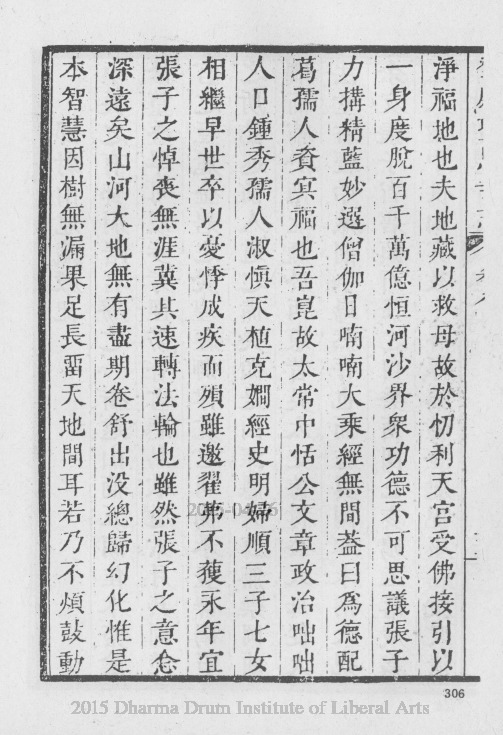 淨福地也夫地藏以救母故於忉利天宮受佛接引以
一身度脫百千萬億恒河沙界衆功德不可思議張子
力搆精藍妙選僧伽日喃喃大乘經無間葢曰爲德配
葛孺人資㝠福也吾崑故太常中恬公文章政治咄咄
人口鍾秀孺人淑慎天植克嫺經史明婦順三子七女
相繼早世卒以憂悸成疾而殞雖邀翟茀不獲永年宜
張子之悼喪無涯冀其速轉法輪也雖然張子之意念
深遠矣山河大地無有盡期卷舒出没總歸幻化惟是
本智慧因樹無漏果足長畱天地間耳若乃不煩鼓動
306
2015 Dharma Drum Institute of Liberal Arts